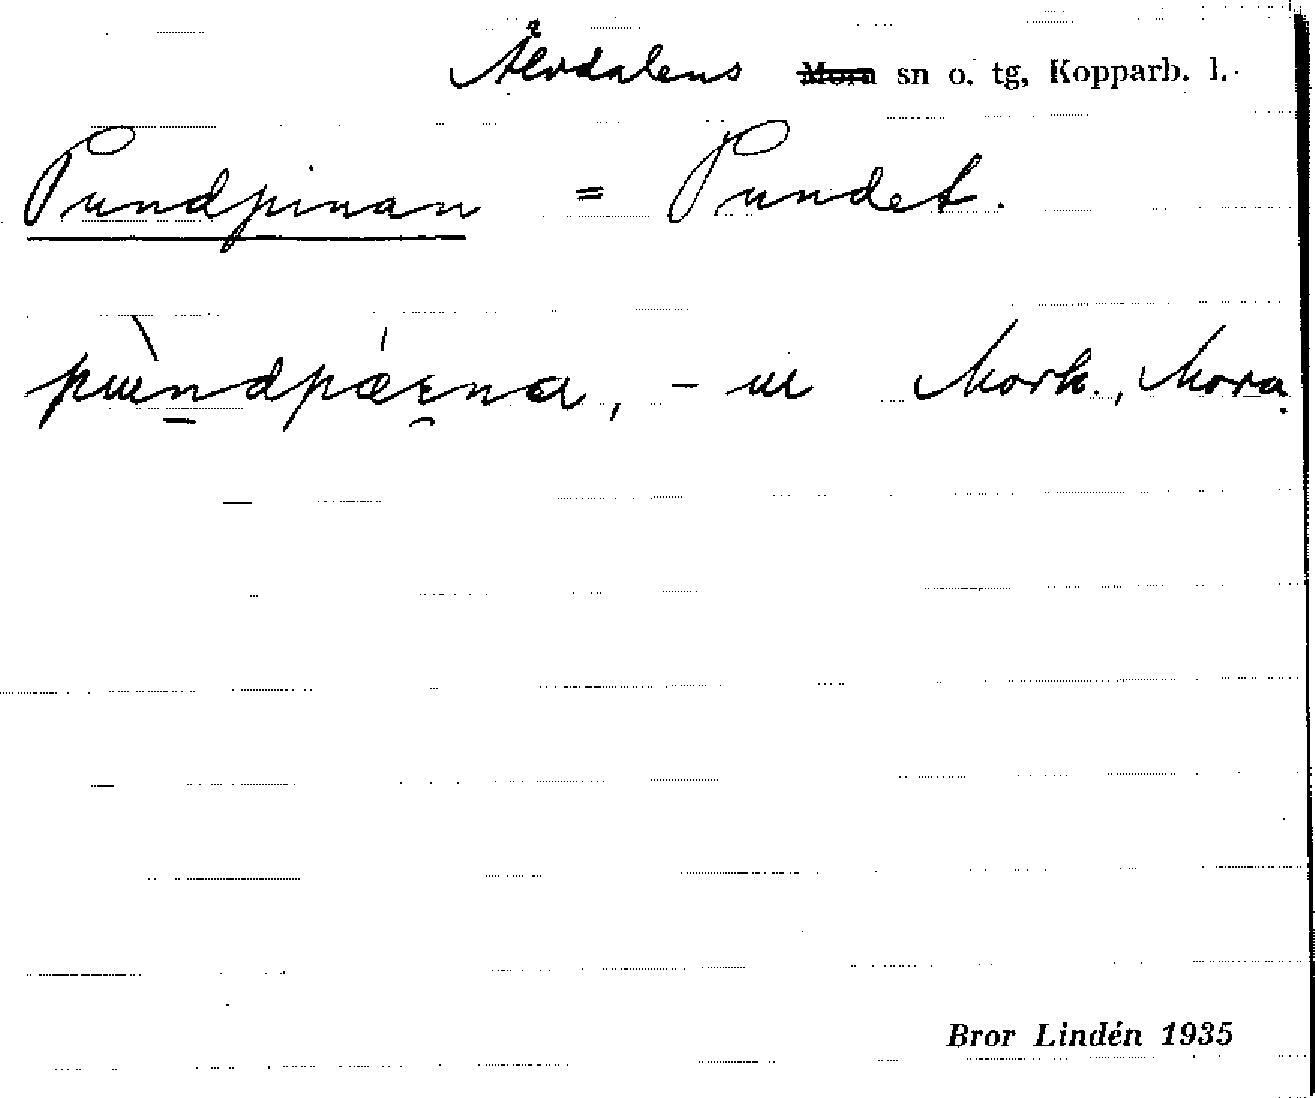 Älvdalens ~~Mora~~ sn o. tg, Kopparb. l.
Pundpinan = Pundet.
Mork., Mora
Bror Lindén 1935